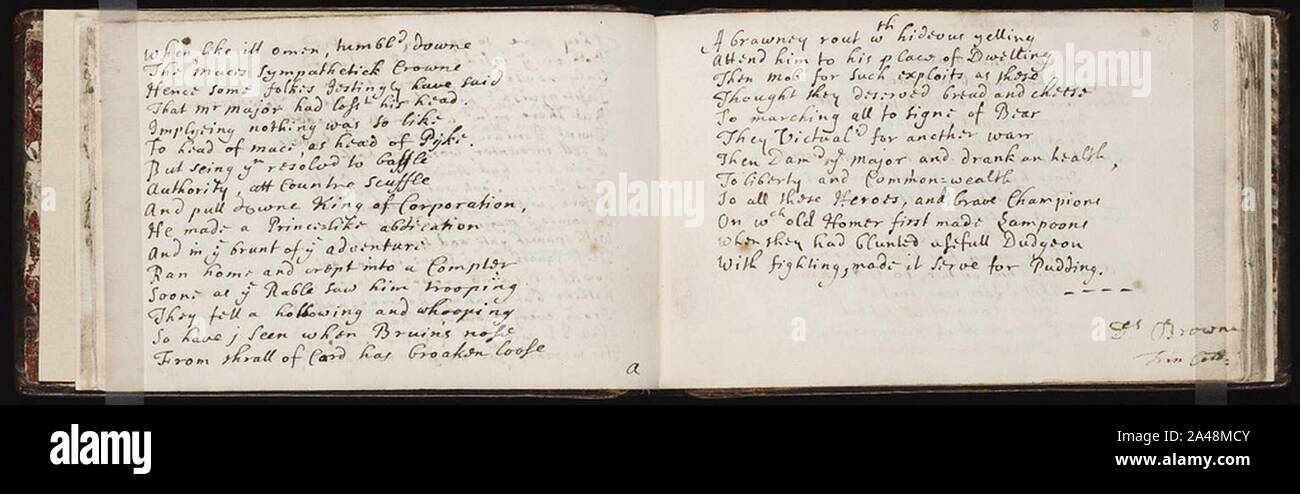 When like ill omen, tumbl'd downe
The maces Sympathetick Crowne
Hence some folkes Jestingly have said
That mr major had lost his head.
Implyeing nothing was so like
To head of mace, as head of Pyke.
But seing ym resolv'd to baffle
Authority, att Countre Scuffle
And pull downe King of Corporation,
He made a Princelike abdication
And in ye brunt of ye adventure
Ran home and crept into a Compter
Soone as ye Rable saw him trooping
They fell a hollowing and whooping
So have j seen when Bruin's nose
From thrall of Cord has broaken loose
a
8
A brawney rout wth hideous yelling
Attend him to his place of Dwelling
Then mob for such exploits as these
Thought they deserved bread and cheese
So marching all to signe of Bear
They Victual'd for another warr
Then Dam'd ye major and drank an health,
To liberty and Common=wealth
So all these Heroes, and brave Champions
On wch old Homer first made Lampoons
When they had blunted usefull Dudgeon
With fighting, made it serve for Pudding.
Browne
Trin Coll:
alamy
alamy
a
a
a
a
alamy
Image ID: 2A48MCY
www.alamy.com